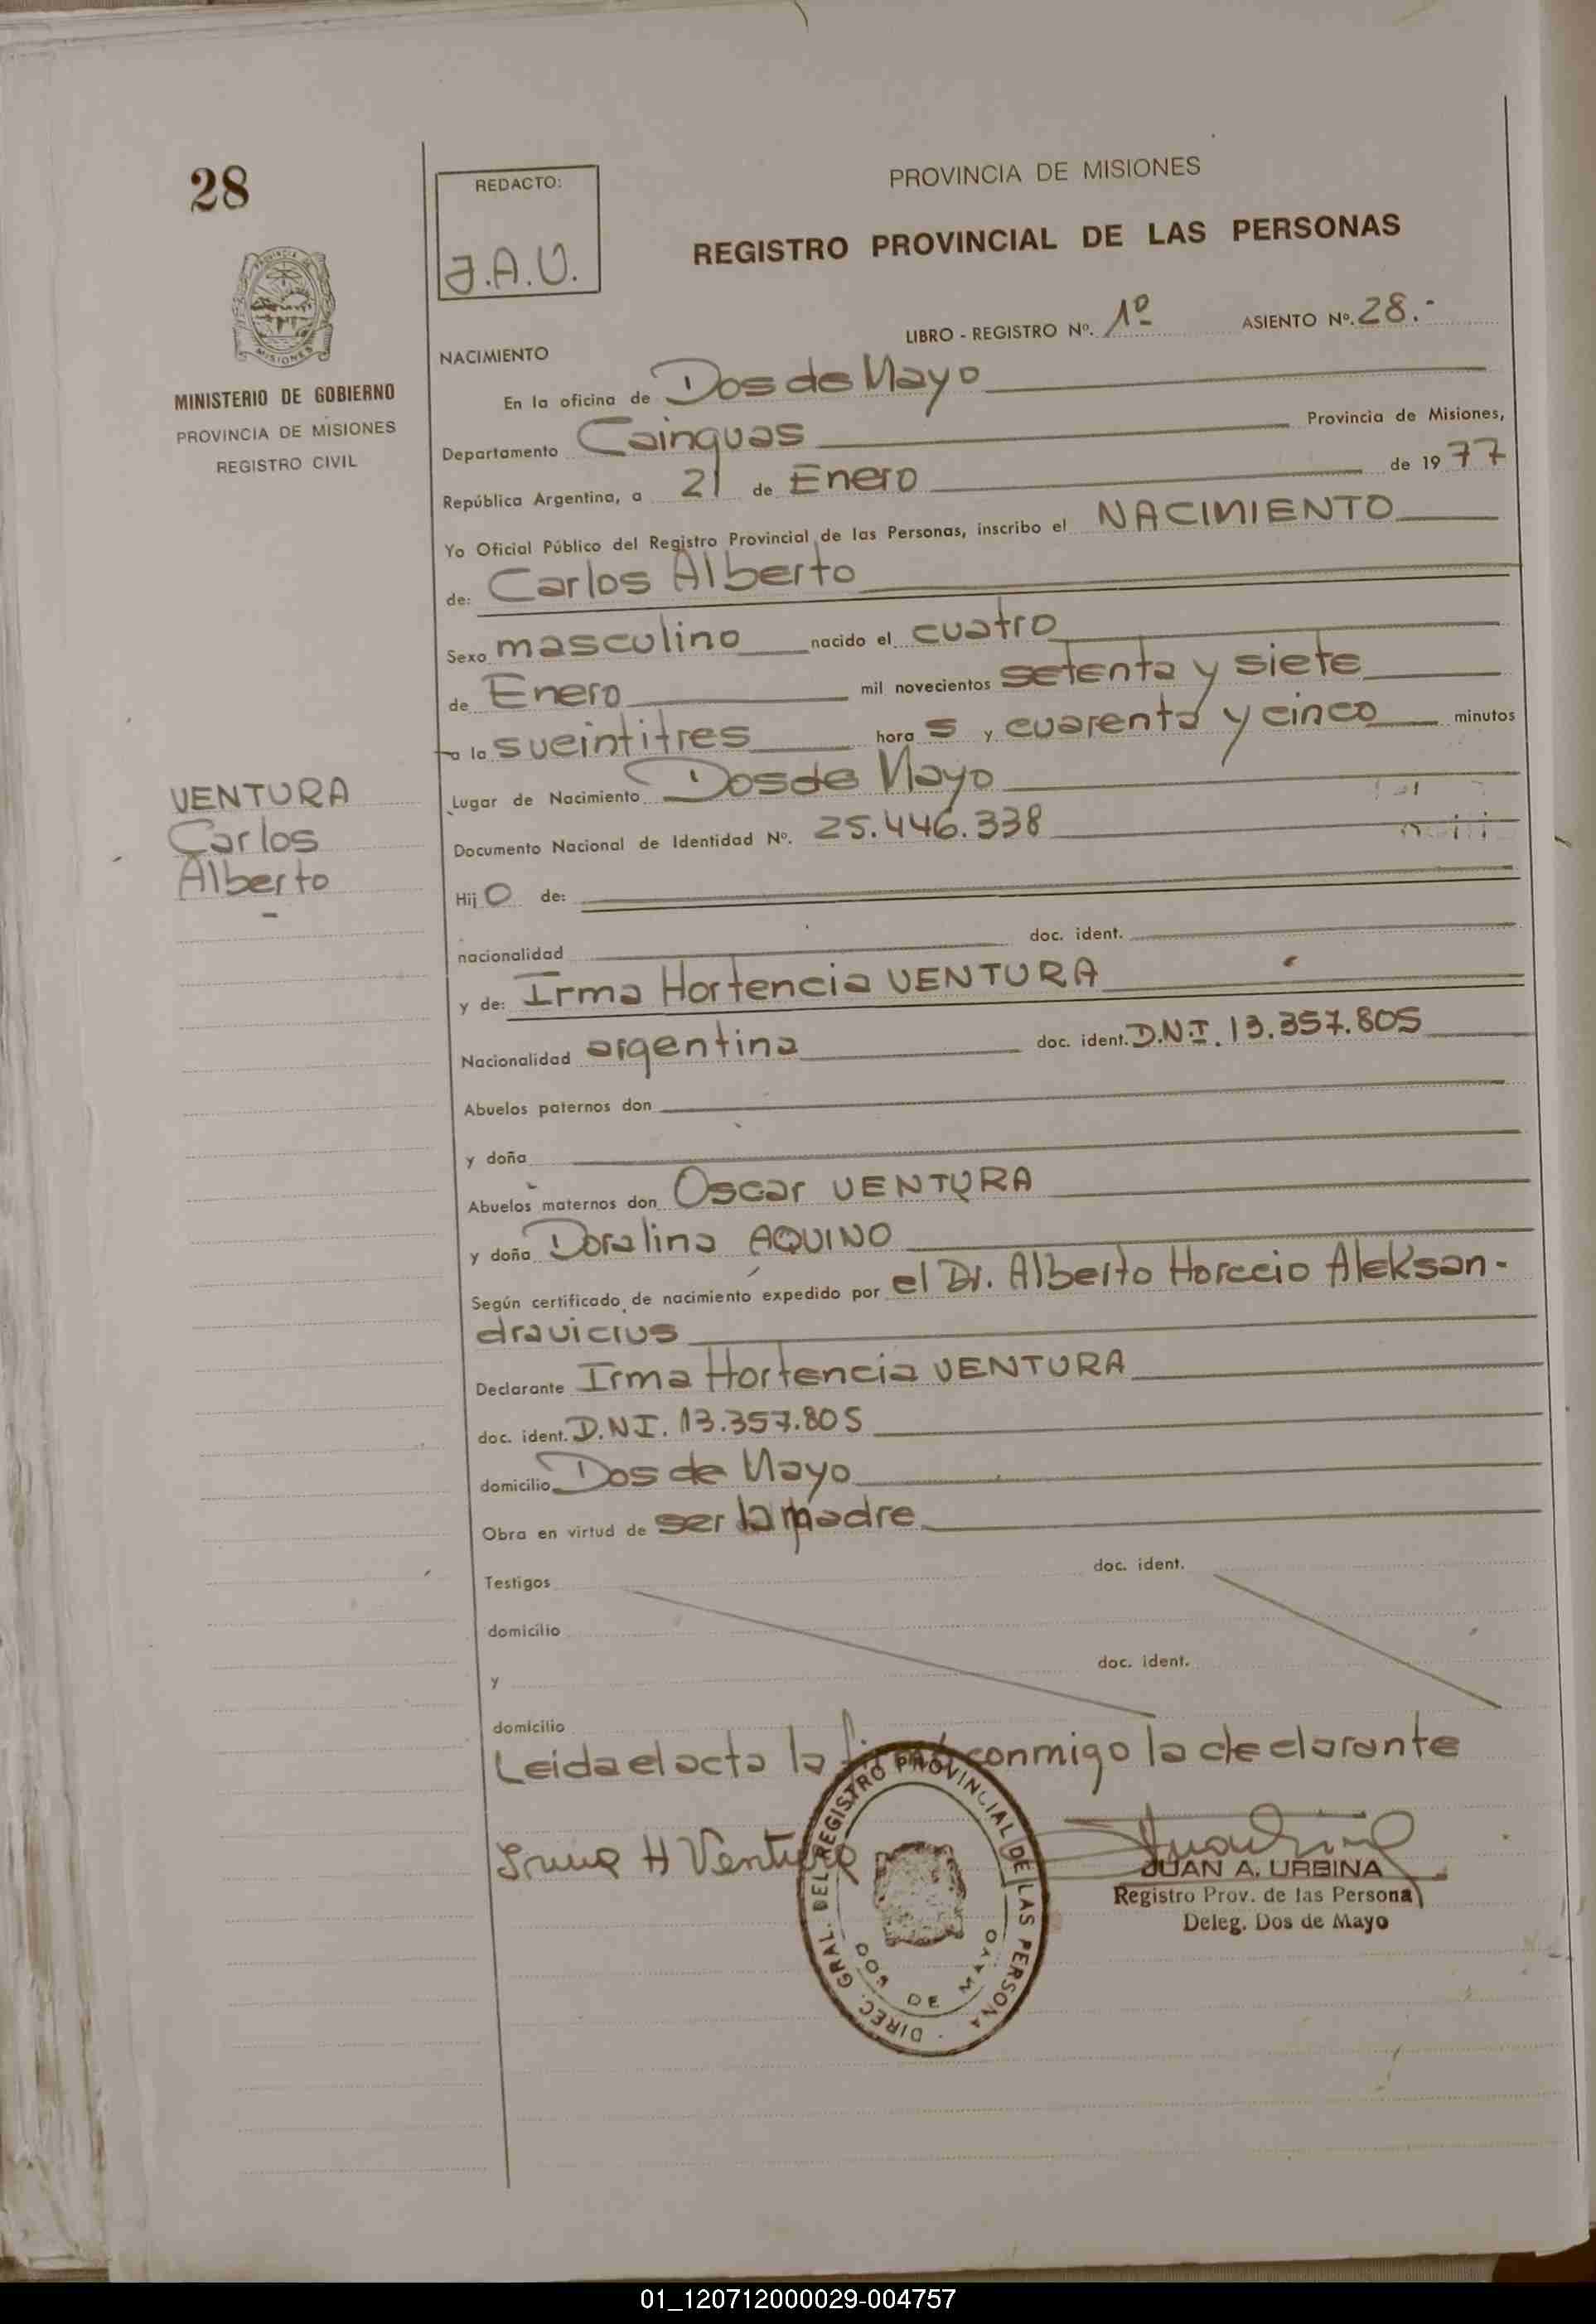 28
REDACTO:
J.A.U.
PROVINCIA DE MISIONES
REGISTRO PROVINCIAL DE LAS PERSONAS
LIBRO - REGISTRO Nº. 1º ASIENTO Nº. 28.-
MISIONES
MINISTERIO DE GOBIERNO
PROVINCIA DE MISIONES
REGISTRO CIVIL
NACIMIENTO
En la oficina de Dos de Mayo
Departamento Cainguas Provincia de Misiones,
República Argentina, a 21 de Enero de 1977
Yo Oficial Público del Registro Provincial de las Personas, inscribo el NACIMIENTO
de: Carlos Alberto
Sexo masculino nacido el cuatro
de Enero mil novecientos setenta y siete
a la s veintitres hora s y cuarenta y cinco minutos
Lugar de Nacimiento Dos de Mayo
VENTURA
Carlos
Alberto
-
Documento Nacional de Identidad Nº. 25.446.338
Hijo de:
nacionalidad doc. ident.
y de: Irma Hortencia VENTURA
Nacionalidad argentina doc. ident. D.N.I. 13.357.805
Abuelos paternos don
y doña
Abuelos maternos don Oscar VENTURA
y doña Doralina AQUINO
Según certificado de nacimiento expedido por el Dr. Alberto Horacio Aleksan-
dravicius
Declarante Irma Hortencia VENTURA
doc. ident. D.N.I. 13.357.805
domicilio Dos de Mayo
Obra en virtud de ser la madre
Testigos doc. ident.
domicilio
y doc. ident.
domicilio
Leida el acta la firmó conmigo la declarante
Irma H Ventura
DIREC. GRAL. DEL REGISTRO PROVINCIAL DE LAS PERSONA
DOS DE MAYO
JUAN A. URBINA
Registro Prov. de las Persona
Deleg. Dos de Mayo
01_120712000029-004757